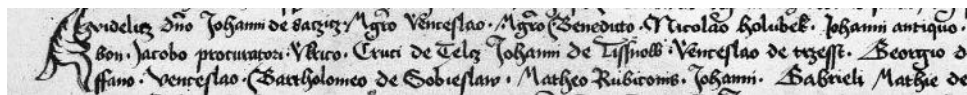 videlicz dno Johanni de satzicz · Mgro Venceslao · Mgro Benedicto · Nicolao holubek · Johanni antiquo ·
bon · Jacobo procuratori · Vlrico · Cruci de Telcz Johanni de Tissnow · Venceslao de trzesst · Georgio d
ffano · Venceslao · Bartholomeo de Sobieslaw · Matheo Rubicomis · Johanni · Gabrieli Mathie de